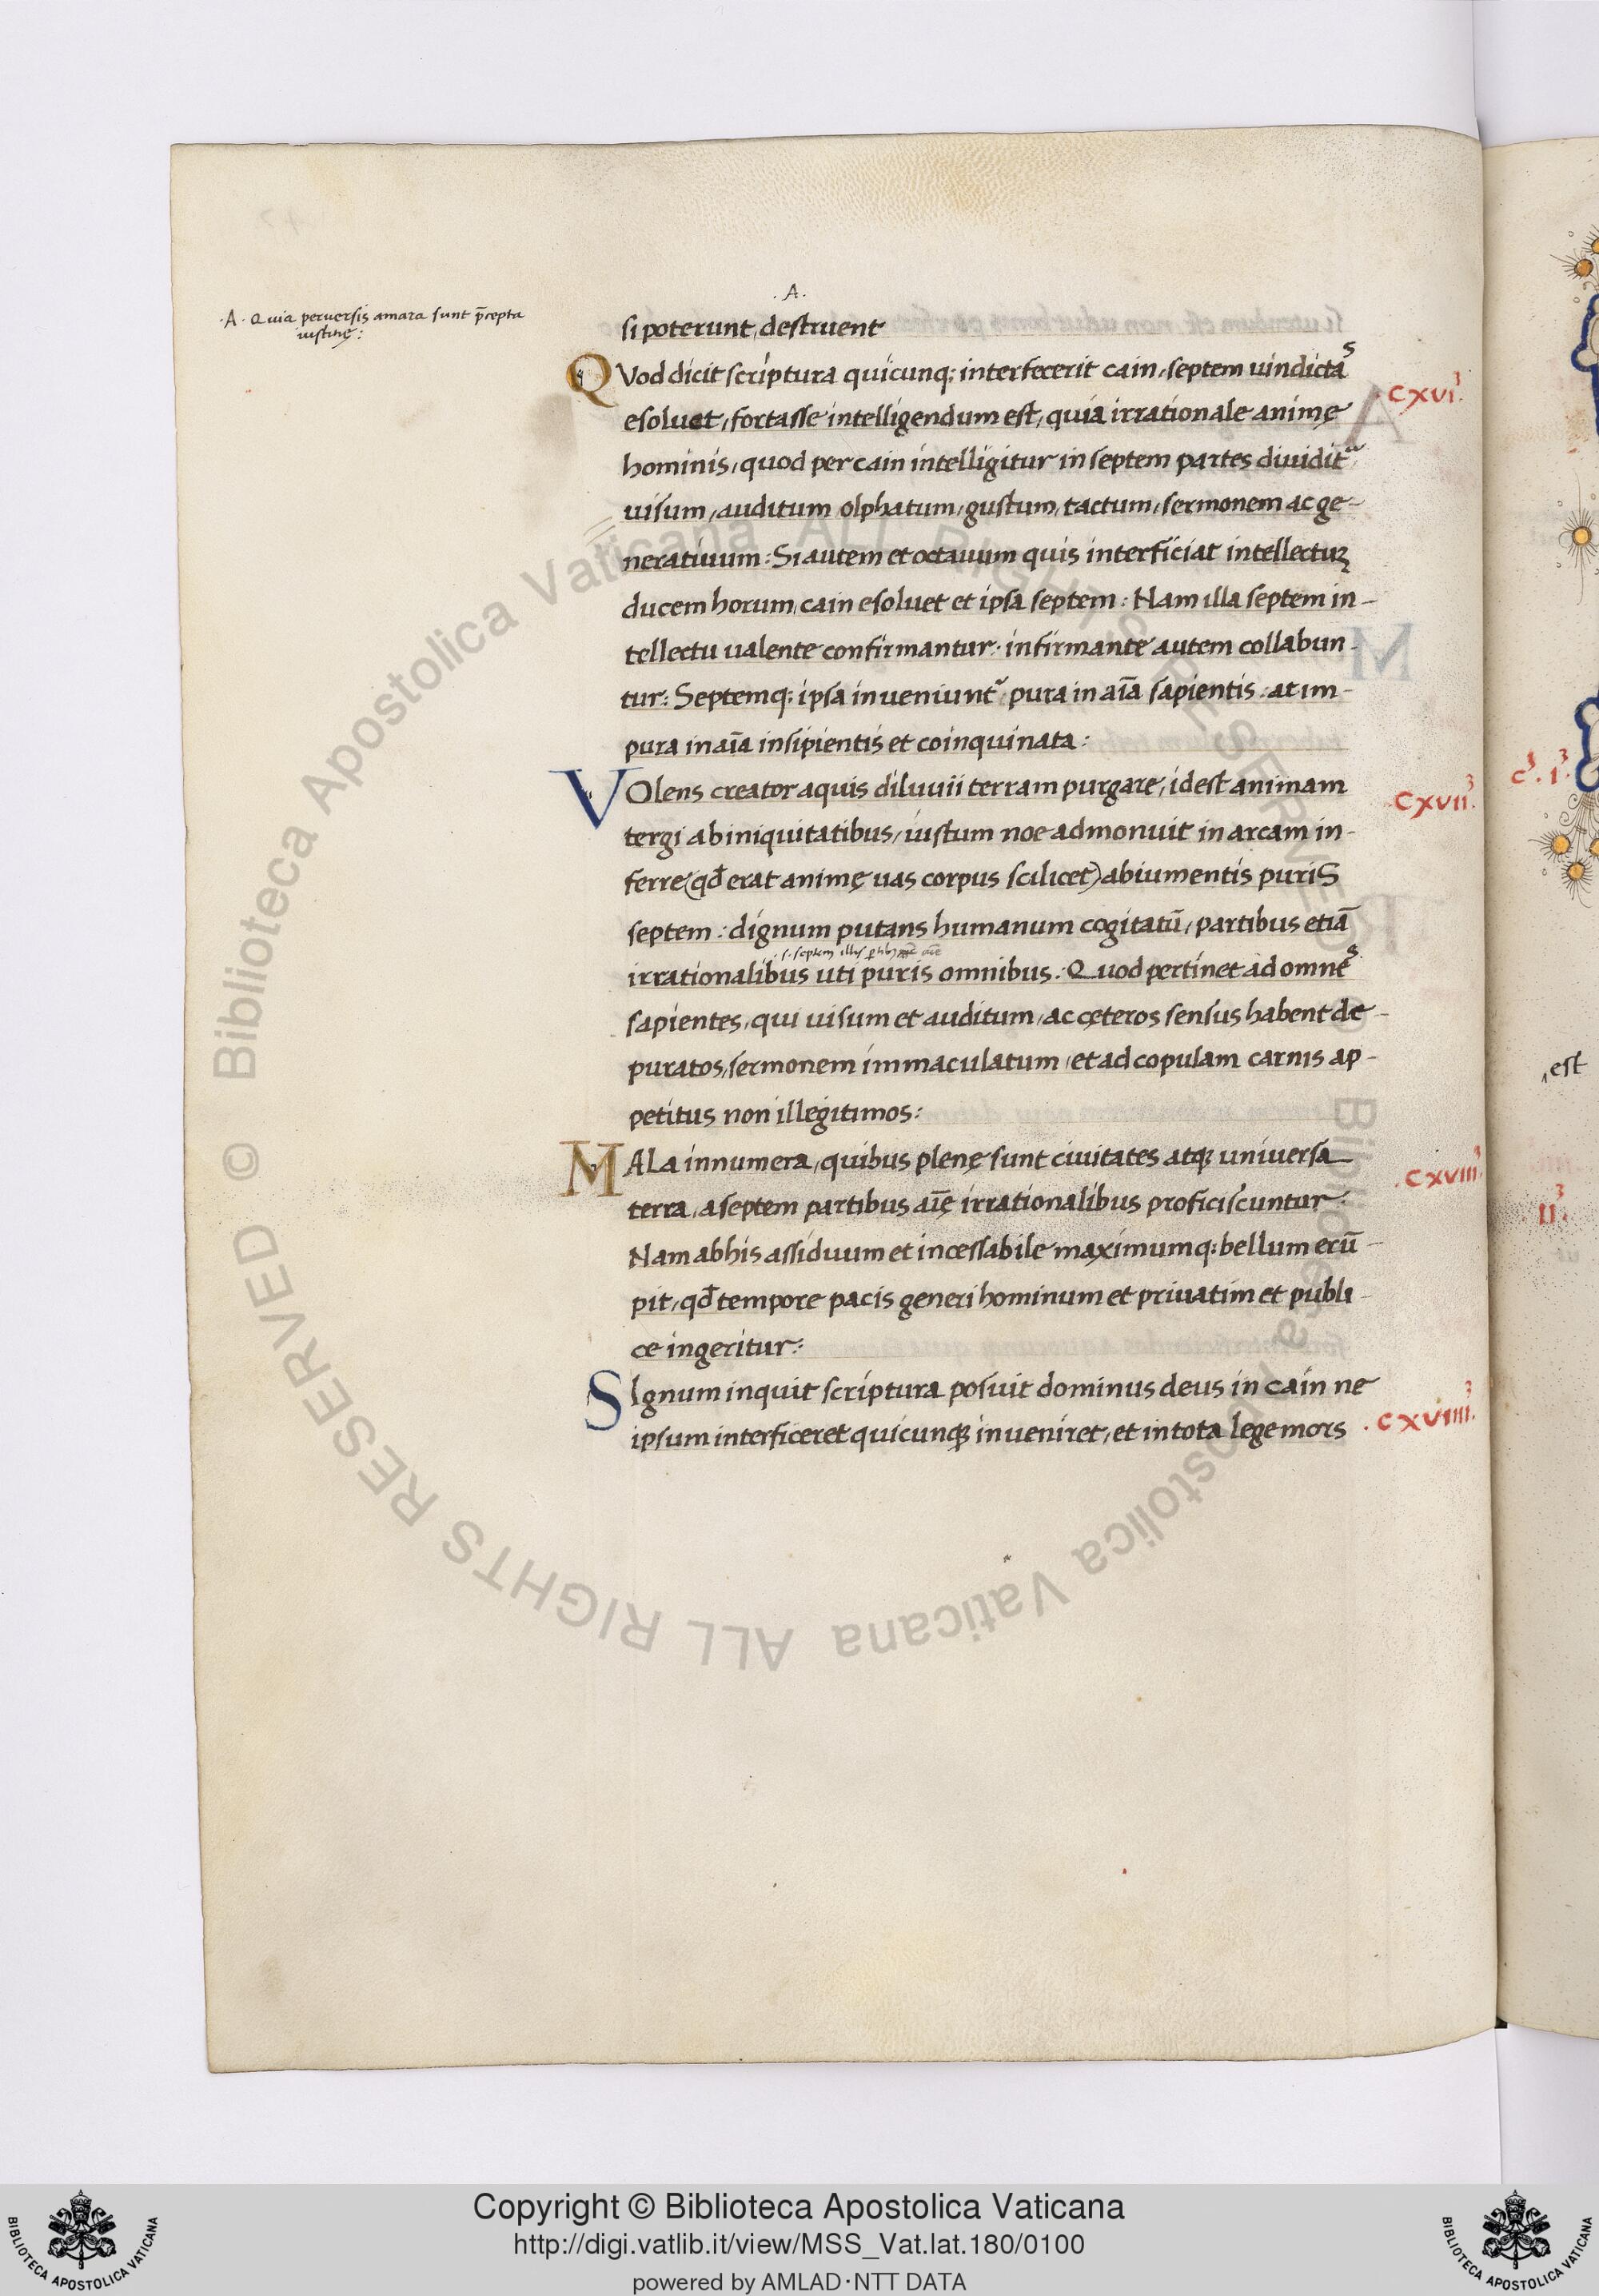 .A.
·A· Quia peruersis amara sunt p̄cepta
iustitię:
si poterunt, destruent
QVod dicit scriptura quicunq; interfecerit cain, septem uindictas
esoluet, fortasse intelligendum est, quia irrationale animę
hominis, quod per cain intelligitur in septem partes diuidit᷑
uisum, auditum olphatum, gustum, tactum, sermonem ac ge-
neratiuum: Si autem et octauum quis interficiat intellectuȝ
ducem horum, cain esoluet et ipsa septem: Nam illa septem in-
tellectu ualente confirmantur· infirmante autem collabun-
tur: Septemq; ipsa inueniunt᷑ pura in aīa sapientis. at im-
pura in aīa insipientis et coinquinata:
VOlens creator aquis diluuii terram purgare, idest animam
tergi ab iniquitatibus, iustum noe admonuit in arcam in-
ferre (qđ erat animę uas corpus scilicet) ab iumentis puriS
septem: dignum putans humanum cogitatū, partibus etiā
.s. septem illis
irrationalibus uti puris omnibus: Quod pertinet ad omnes
sapientes, qui uisum et auditum, ac cęteros sensus habent de-
puratos, sermonem immaculatum, et ad copulam carnis ap-
petitus non illegitimos:
MALa innumera, quibus plenę sunt ciuitates atq; uniuersa
terra, a septem partibus aīę irrationalibus proficiscuntur.
Nam ab his assiduum et incessabile maximumq; bellum erū-
pit, qđ tempore pacis generi hominum et priuatim et publi-
ce ingeritur:
SIgnum inquit scriptura posuit dominus deus in cain ne
ipsum interficeret quicunq; inueniret, et in tota lege mors
·CXVI.³
·CXVII.³
.CXVIII.³
.CXVIIII.³
C³.I³.
,est
II.³
Biblioteca Apostolica Vaticana ALL RIGHTS RESERVED ©
Biblioteca Apostolica Vaticana ALL RIGHTS RESERVED ©
Copyright © Biblioteca Apostolica Vaticana
http://digi.vatlib.it/view/MSS_Vat.lat.180/0100
powered by AMLAD·NTT DATA
BIBLIOTECA APOSTOLICA VATICANA
BIBLIOTECA APOSTOLICA VATICANA